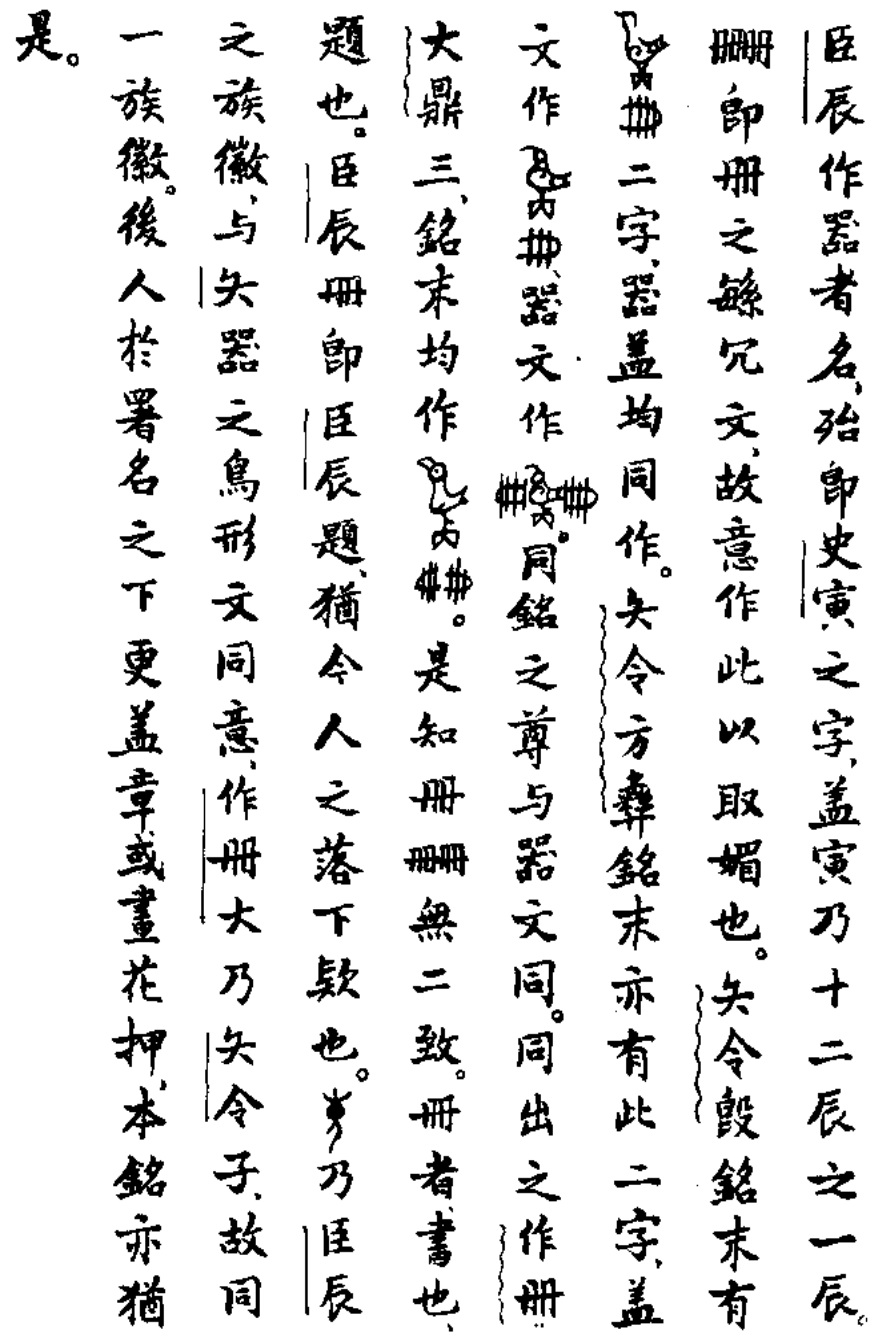 臣辰作器者名、殆即史寅之字、盖寅乃十二辰之一辰。
𠕁即冊之緐冗文、故意作此以取媚也。矢令𣪘銘末有
二字、器盖均同作。矢令方彝銘末亦有此二字、盖
文作、器文作。同銘之尊与器文同。同出之作冊
大鼎三、銘末均作。是知冊𠕁無二致。冊者、書也、
題也。臣辰冊即臣辰題、猶今人之落下欵也。乃臣辰
之族徽、与矢器之鳥形文同意、作冊大乃矢令子、故同
一族徽。後人於署名之下更盖章或畫花押、本銘亦猶
是。